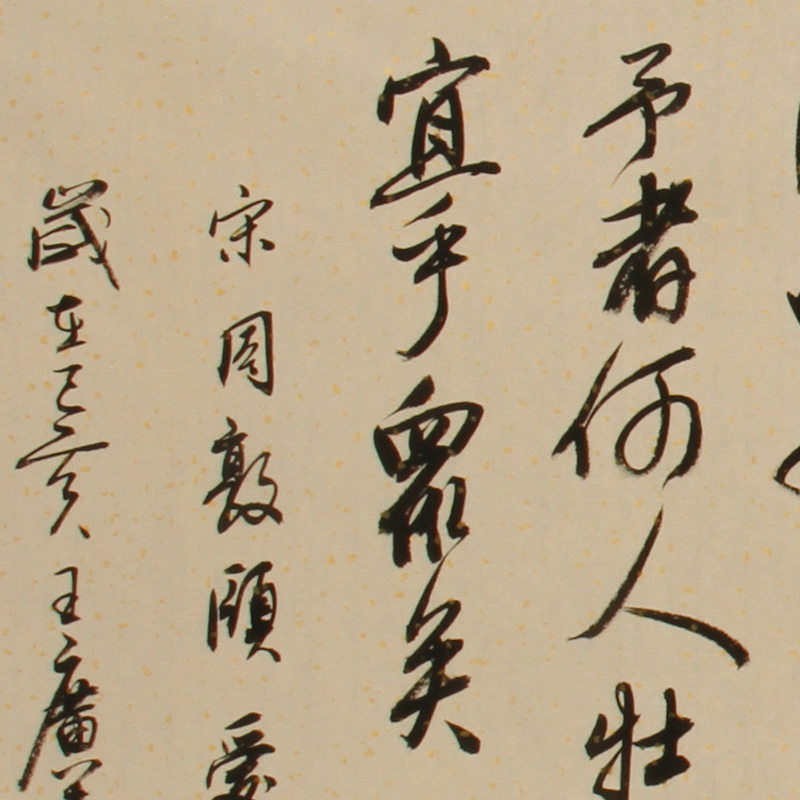 予者何人牡
宜乎眾矣
宋周敦頤愛
歲在己亥王廣